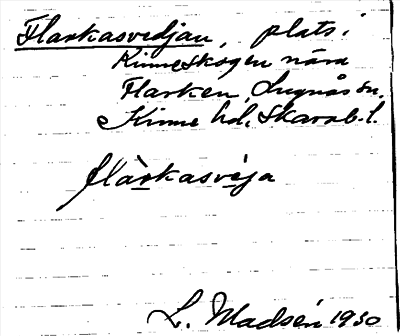 Flarkasvedjan, plats i
Kinneskogen nära
Flarken, Lugnås sn.
Kinne hd, Skarab. l.
flàrkasvèja
L. Madsén 1930